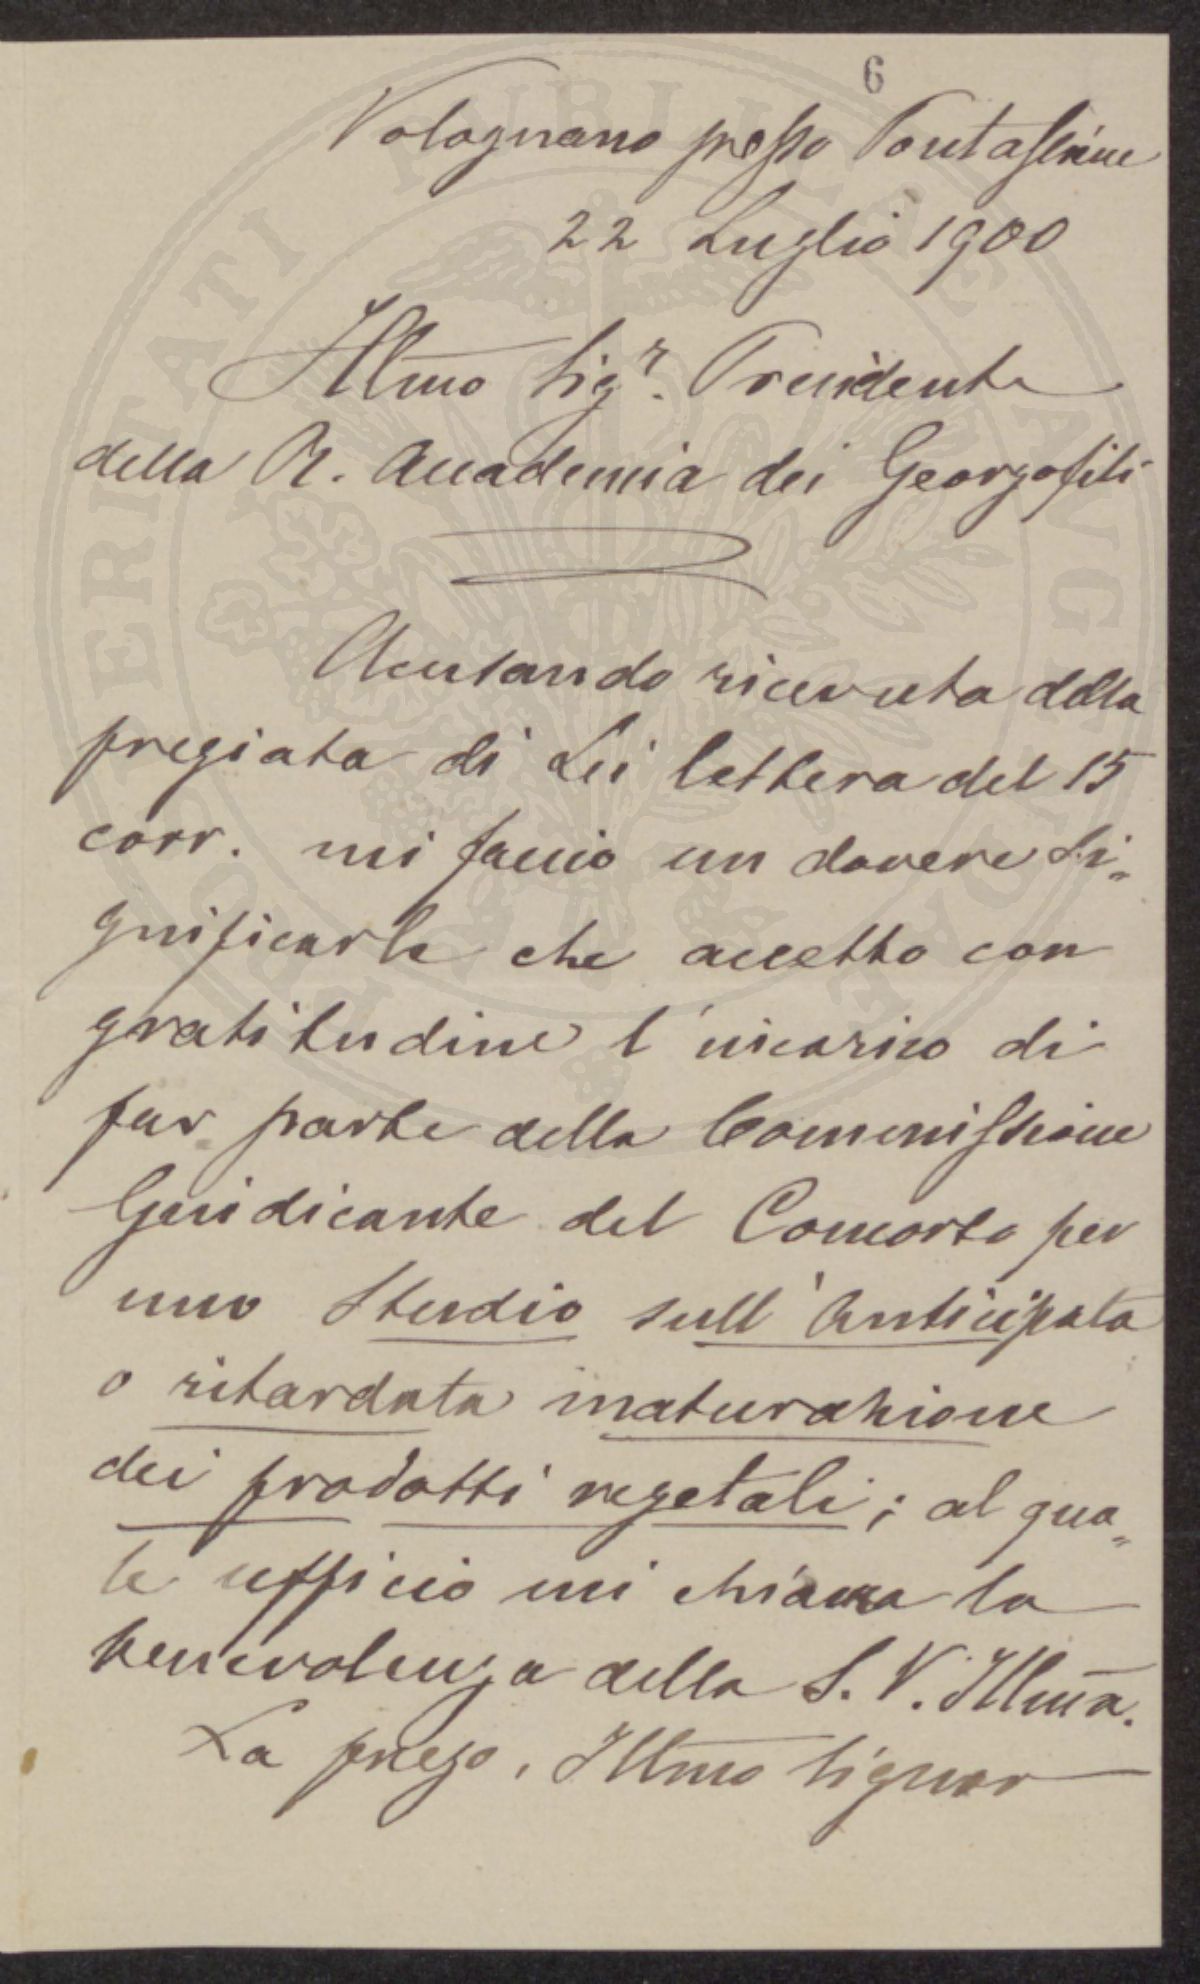 6
Volognano presso Pontassieve
22 Luglio 1900
Illmo Sigr. Presidente
della R. Accademia dei Georgofili
Accusando ricevuta della
pregiata di Lei lettera del 15
corr. mi faccio un dovere si=
gnificarle che accetto con
gratitudine l'incarico di
far parte della Commissione
Giudicante del Concorso per
uno Studio sull'Anticipata
o ritardata maturazione
dei prodotti vegetali; al qua=
le ufficio mi chiama la
benevolenza della S. V. Illma.
La prego, Illmo Signor
PROSPERITATI PUBLICAE AUGENDAE